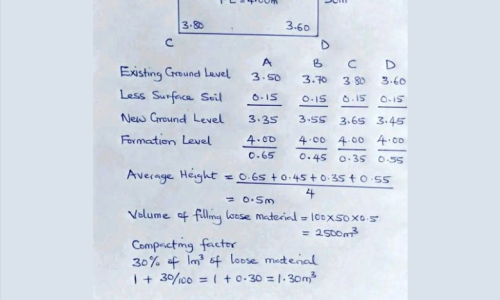 FL = 4.00m 50m
3.80 3.60
C D
A B C D
Existing Ground Level 3.50 3.70 3.80 3.60
Less Surface Soil 0.15 0.15 0.15 0.15
New Ground Level 3.35 3.55 3.65 3.45
Formation Level 4.00 4.00 4.00 4.00
0.65 0.45 0.35 0.55
Average Height = 0.65 + 0.45 + 0.35 + 0.55
4
= 0.5m
Volume of filling loose material = 100x50x0.5
= 2500m³
Compacting factor
30% of 1m³ of loose material
1 + 30/100 = 1 + 0.30 = 1.30m³